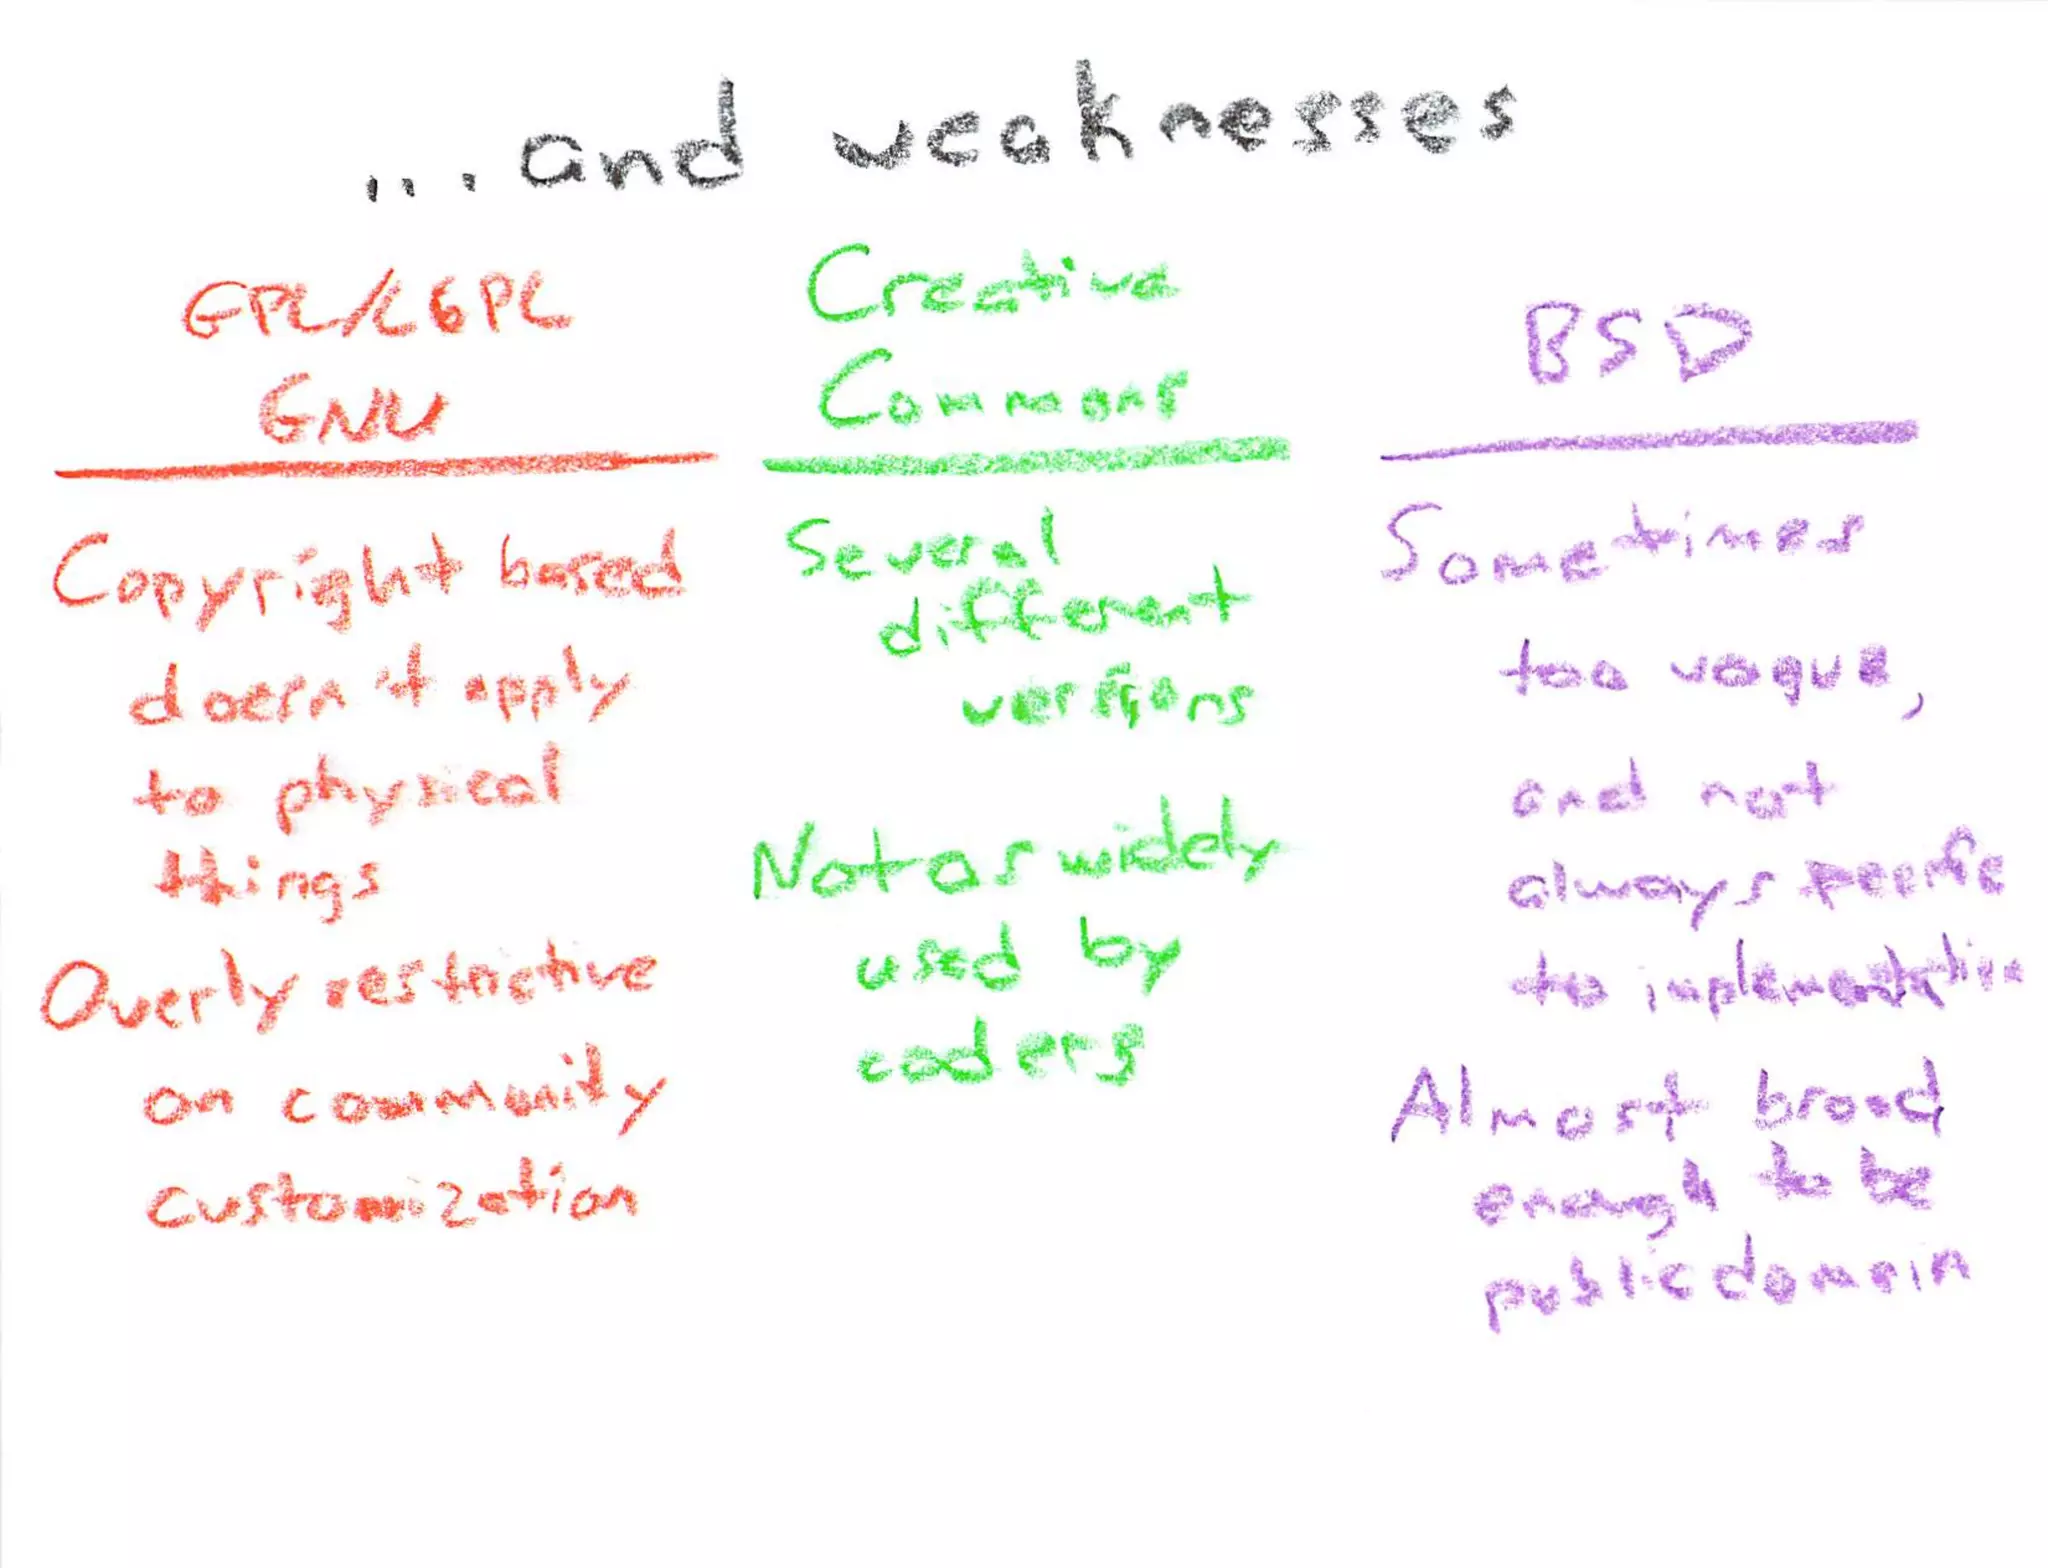 ...and weaknesses
GPL/LGPL
GNU
Copyright based
doesn't apply
to physical
things
Overly restrictive
on community
customization
Creative
Commons
Several
different
versions
Not as widely
used by
coders
BSD
Sometimes
too vague,
and not
always
to implementation
Almost broad
enough to be
public domain